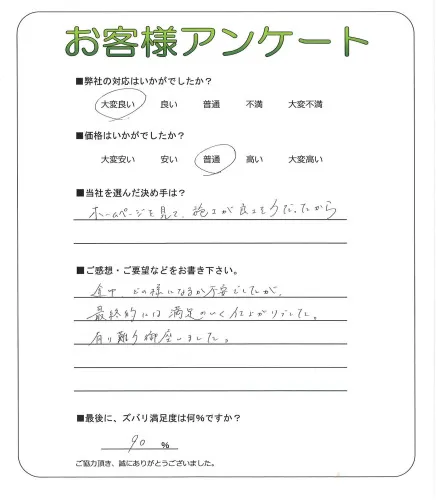 お客様アンケート
■弊社の対応はいかがでしたか？
大変良い　良い　普通　不満　大変不満
■価格はいかがでしたか？
大変安い　安い　普通　高い　大変高い
■当社を選んだ決め手は？
ホームページを見て、施工が良さそうだったから
■ご感想・ご要望などをお書き下さい。
途中、どの様になるか不安でしたが、
最終的には満足のいく仕上がりでした。
有り難う御座いました。
■最後に、ズバリ満足度は何%ですか？
90 %
ご協力頂き、誠にありがとうございました。